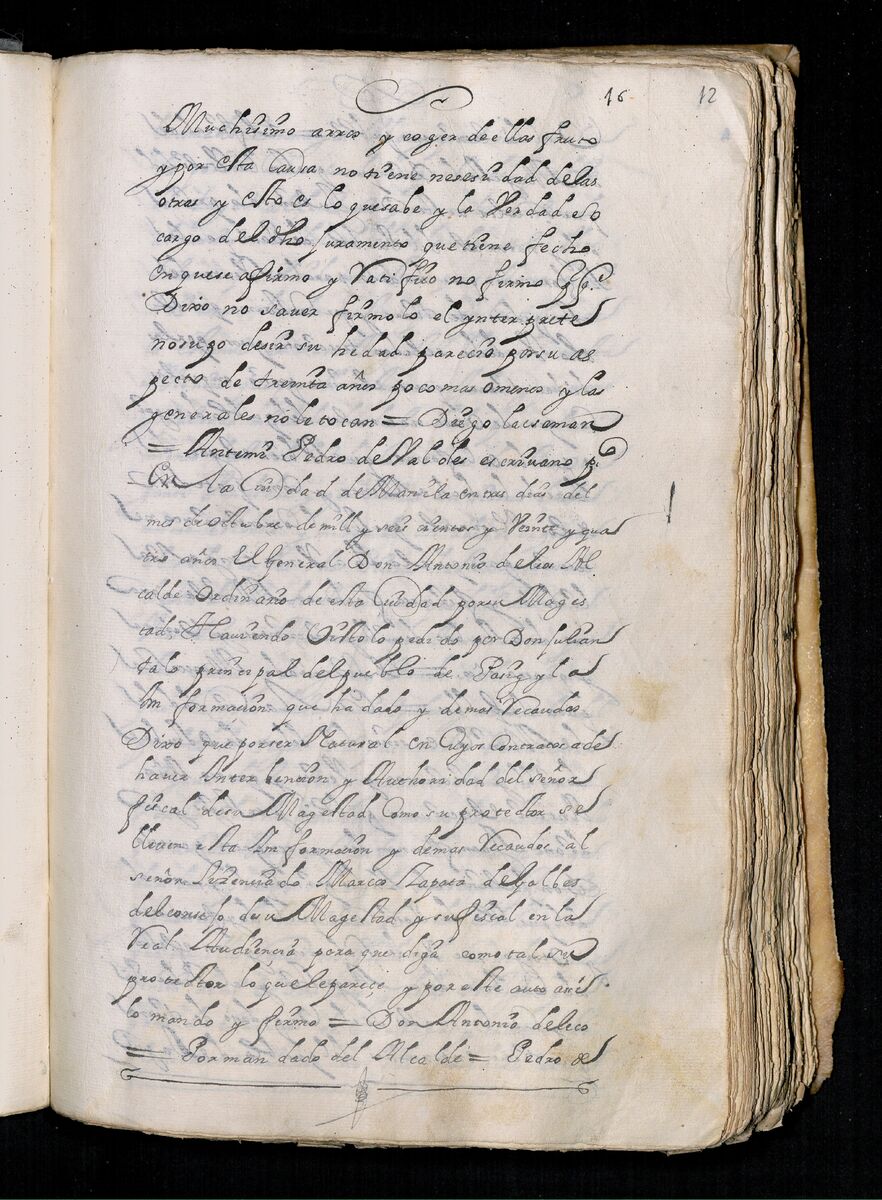 16 12
Muchisimo arros y coger de ellas fruto
y por esta Causa no tiene nesesidad de las
otras y esto es lo que sabe y la Verdad so
cargo del dho Juramento que tiene fecho
En que se afirmo y Ratifico no firmo
Dixo no saver firmolo el ynterprete
no supo desir su hedad parecio por su as
pecto de treinta años poco mas o menos y las
generales no le tocan = Diego lacsaman
= Antemi Pedro de Valdes escrivano pco
En la Ciudad de Manila en tres dias del
mes de otubre de mill y seis cientos y Veinte y qua
tro años El General Don Antonio de leos Al
calde Ordinario de esta Ciudad por su Mages
tad Haviendo Visto lo pedido por Don Julian
talo principal del pueblo de Pasig y la
Informaçion que ha dado y demas Recaudos
Dixo que por ser Natural en Cuyos Contratos a de
haver Interbencion y Authoridad del señor
fiscal de su Magestad Como su protector se
lleven esta Informacion y demas Recaudos al
señor Licenciado Marcos Zapata de galbes
del consejo de su Magestad y su fiscal en la
Real Audiencia para que diga como tal su
protector lo que le pareçe y por este auto assi
lo mando y firmo = Don Antonio de leos
= Por mandado del Alcalde = Pedro de